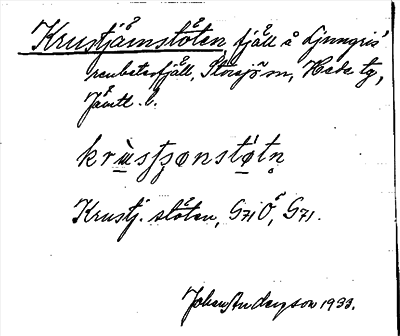 Krustjämstöten, fjäll å Ljungris'
renbetesfjäll, Storsjö sn, Hede tg,
Jämtl. l.
krùsʃtʂǫnstøtn̥
Krustj. stöten, G71 Ö, G71.
Johan Anderson 1933.